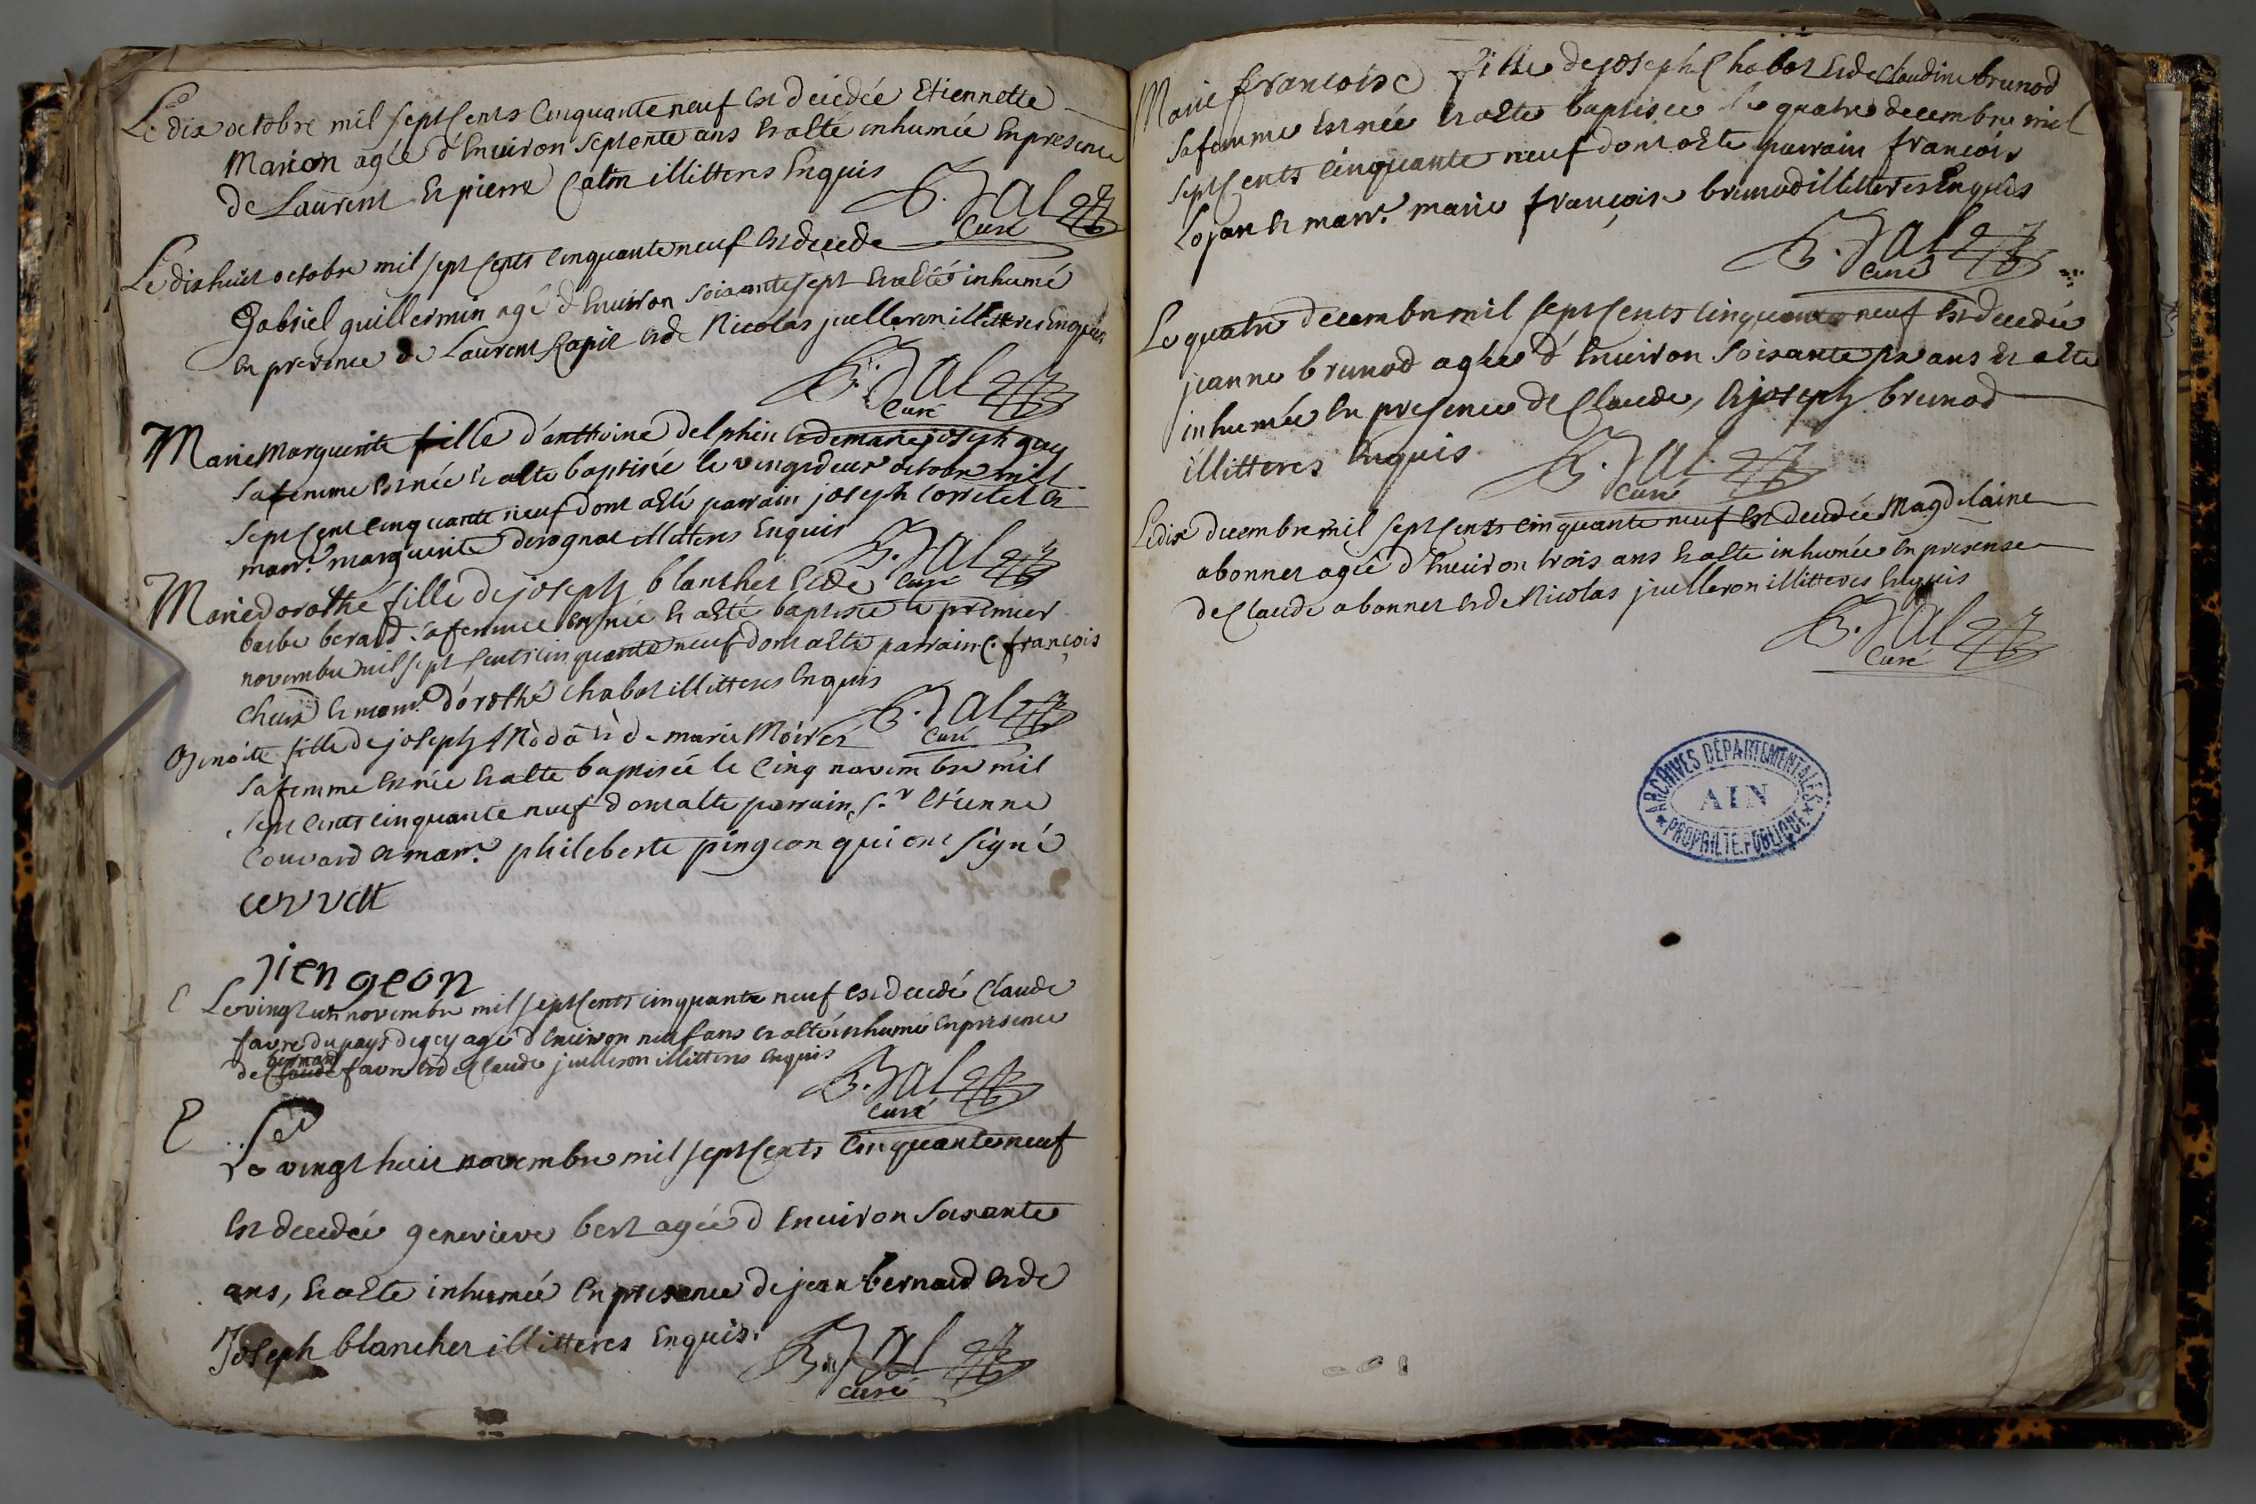 Le dix octobre mil sept Cents Cinquante neuf est décédée Etiennette
Marion agée d'Environ septente ans et a esté inhumée En presence
de Laurent et pierre Caton illitteres Enquis
Curé
Le dix huit octobre mil sept Cents Cinquante neuf est decede
Gabriel guillermin agé d'Environ soixante sept et a esté inhumé
En presence de Laurent et de Nicolas juilleron illitteres Enquis
Curé
Marie Marguerite fille d'anthoine delphin et de marie joseph
sa femme est née et a esté baptisée le vingt deux octobre mil
sept Cent Cinquante neuf dont a esté parrain joseph et
marr.e marguerite illitteres Enquis
Curé
Marie dorothé fille de joseph blanchet et de
barbe berard sa femme est née et a esté baptisée le premier
novembre mil sept Cents cinquante neuf dont a esté parrain C. françois
et marr.e dorothé Chabot illitteres Enquis
Curé
Benoite fille de joseph et de marie
sa femme est née et a esté baptisée le Cinq novembre mil
sept Cents cinquante neuf dont a esté parrain, S.r Etienne
Couvard et marr.e phileberte pingeon qui ont signé
piengeon
Le vingt un novembre mil sept Cents cinquante neuf est decedé Claude
favre du pays de gex agé d'Environ neuf ans et a esté inhumé En presence
bernard
de Claude favre et de Claude juilleron illitteres Enquis
Curé
Le vingt huit novembre mil sept Cents Cinquante neuf
est decedée genevieve bert agée d'Environ soixante
ans, et a esté inhumée En presence de jean bernard et de
Joseph blanchet illitteres Enquis.
curé
Marie françoise fille de joseph Chabot et de Claudine brunod
sa femme est née et a esté baptisée le quatre decembre mil
sept Cents Cinquante neuf dont a esté parrain françois
Lojan et marr.e marie françoise brunod illitteres Enquis
Curé
Le quatre decembre mil sept Cents Cinquante neuf est decedée
jeanne brunod agée d'Environ soixante ans et a esté
inhumée En presence de Claude, et joseph brunod
illitteres Enquis
Curé
Le dix decembre mil sept Cents cinquante neuf est decedée Magdelaine
abonnet agée d'Environ trois ans et a esté inhumée En presense
de Claude abonnet et de Nicolas juilleron illitteres Enquis
Curé
ARCHIVES DÉPARTEMENTALES
AIN
PROPRIÉTÉ PUBLIQUE